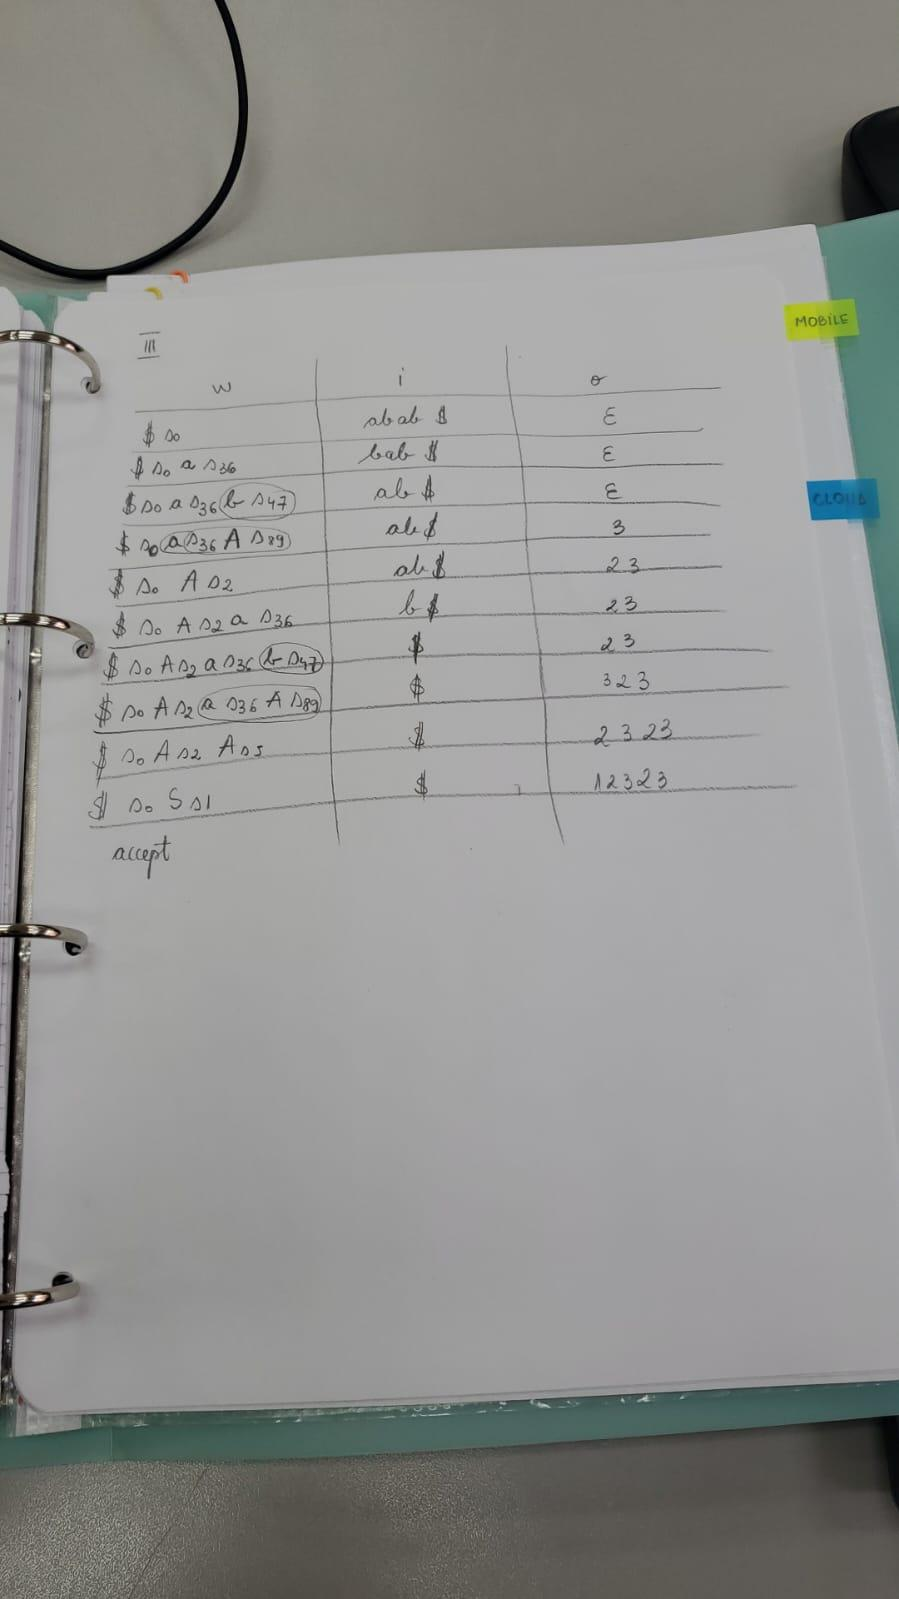 III
MOBILE
w i o
$ s0 abab $ ε
$ s0 a s36 bab $ ε
$ s0 a s36 b s47 ab $ ε
CLOUD
$ s0 a s36 A s89 ab $ 3
$ s0 A s2 ab $ 23
$ s0 A s2 a s36 b $ 23
$ s0 A s2 a s36 b s47 $ 23
$ s0 A s2 a s36 A s89 $ 323
$ s0 A s2 A s5 $ 2323
$ s0 S s1 $ 12323
accept